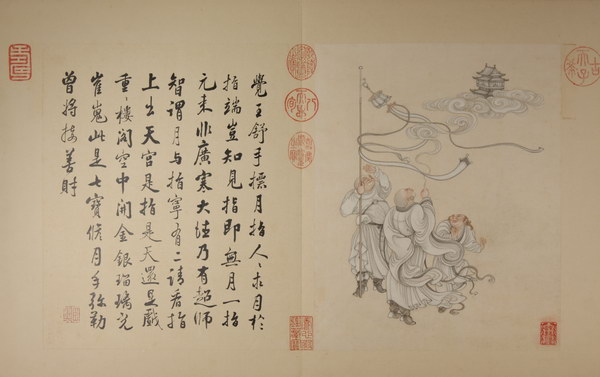 覺王舒手標月指人〻求月於
指端豈知見指即無月一指
元来非廣寒大乃有超師
智謂月與指寧有二請看指
上出天宮是指是天還是戲
重樓閣空中開金銀瑠璃光
崔嵬此是七寶修月手弥勒
曾將接善財